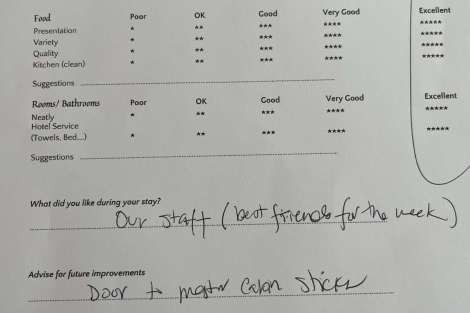 Food Poor OK Good Very Good Excellent
Presentation * ** *** **** *****
Variety * ** *** **** *****
Quality * ** *** **** *****
Kitchen (clean) * ** *** **** *****
Suggestions
Rooms/ Bathrooms Poor OK Good Very Good Excellent
Neatly * ** *** **** *****
Hotel Service
(Towels, Bed,...) * ** *** **** *****
Suggestions
What did you like during your stay?
Our staff (best friends for the week)
Advise for future improvements
Door to master cabin sticks